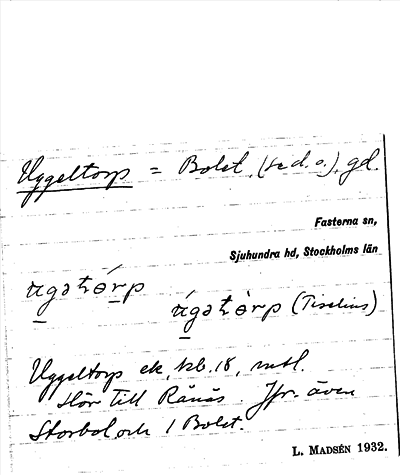 Uggeltorp = Bolet (se d. o.), gd.
Fasterna sn,
Sjuhundra hd, Stockholms län
ugətórp
úgətòrp (Tiselius)
Uggeltorp ek. kb. 18, mtl.
Hör till Rånäs. Jfr. även
Storbol och 1 Bolet.
L. MADSÉN 1932.